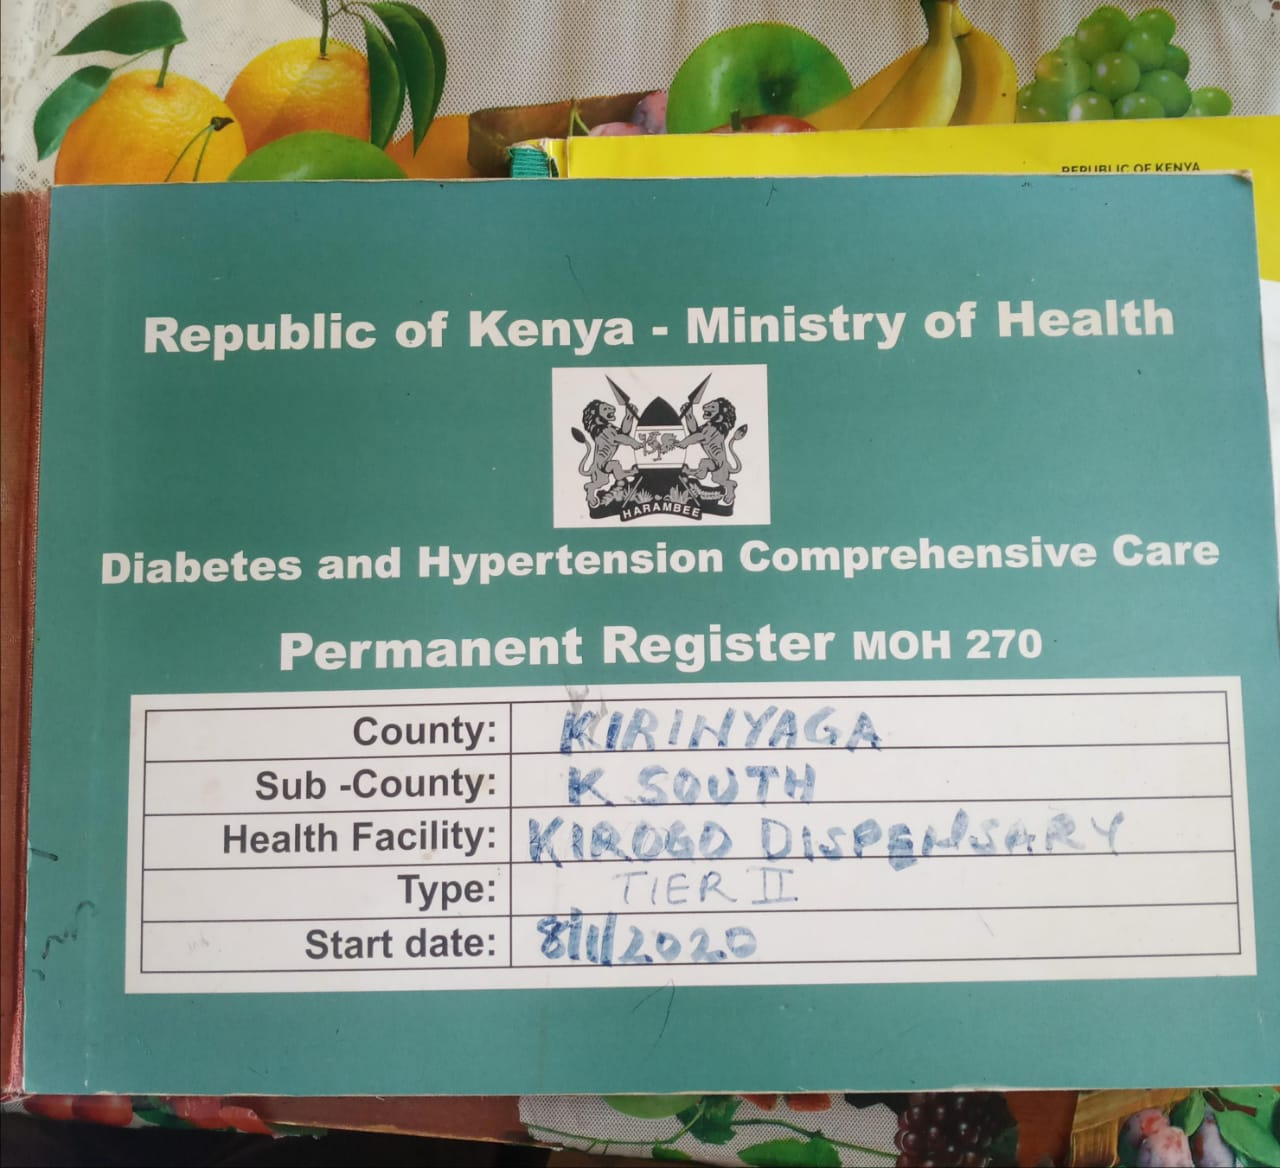 REPUBLIC OF KENYA
Republic of Kenya - Ministry of Health
HARAMBEE
Diabetes and Hypertension Comprehensive Care
Permanent Register MOH 270
County: KIRINYAGA
Sub -County: K SOUTH
Health Facility: KIROGO DISPENSARY
Type: TIER II
Start date: 8/1/2020